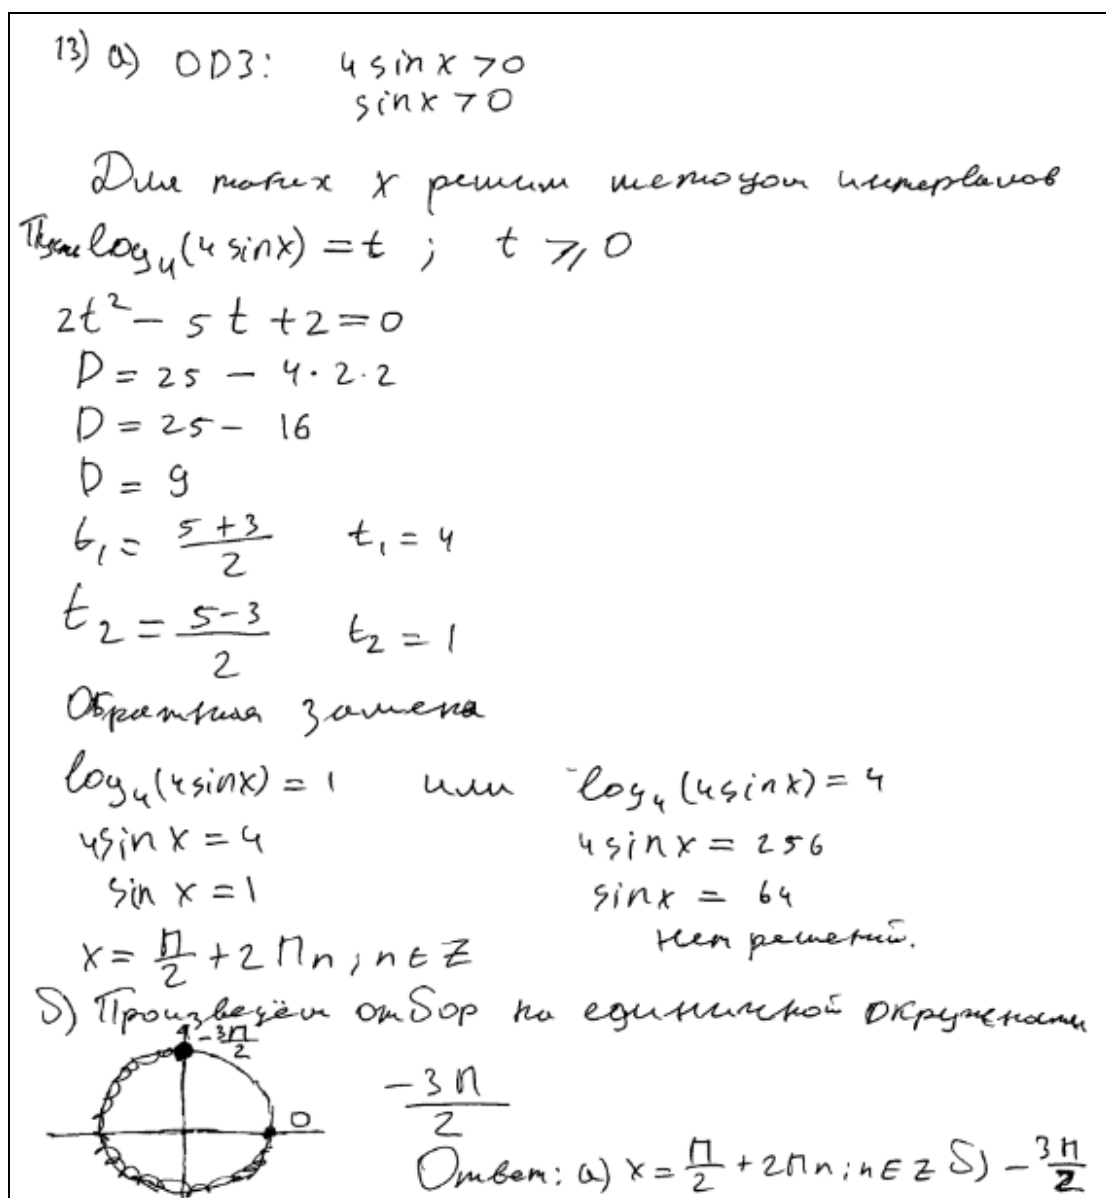 13) а) ОДЗ: 4 sin x > 0
sin x > 0
Для таких x решим методом интервалов
Пусть log₄(4 sin x) = t ; t ⩾ 0
2t² - 5t + 2 = 0
D = 25 - 4·2·2
D = 25 - 16
D = 9
t₁ = (5+3)/2 t₁ = 4
t₂ = (5-3)/2 t₂ = 1
Обратная замена
log₄(4 sin x) = 1 или log₄(4 sin x) = 4
4 sin x = 4 4 sin x = 256
sin x = 1 sin x = 64
x = П/2 + 2Пn ; n ∈ Z нет решений.
б) Произведём отбор на единичной окружности
-3П/2
0
-3П/2
Ответ: а) x = П/2 + 2Пn ; n ∈ Z б) -3П/2